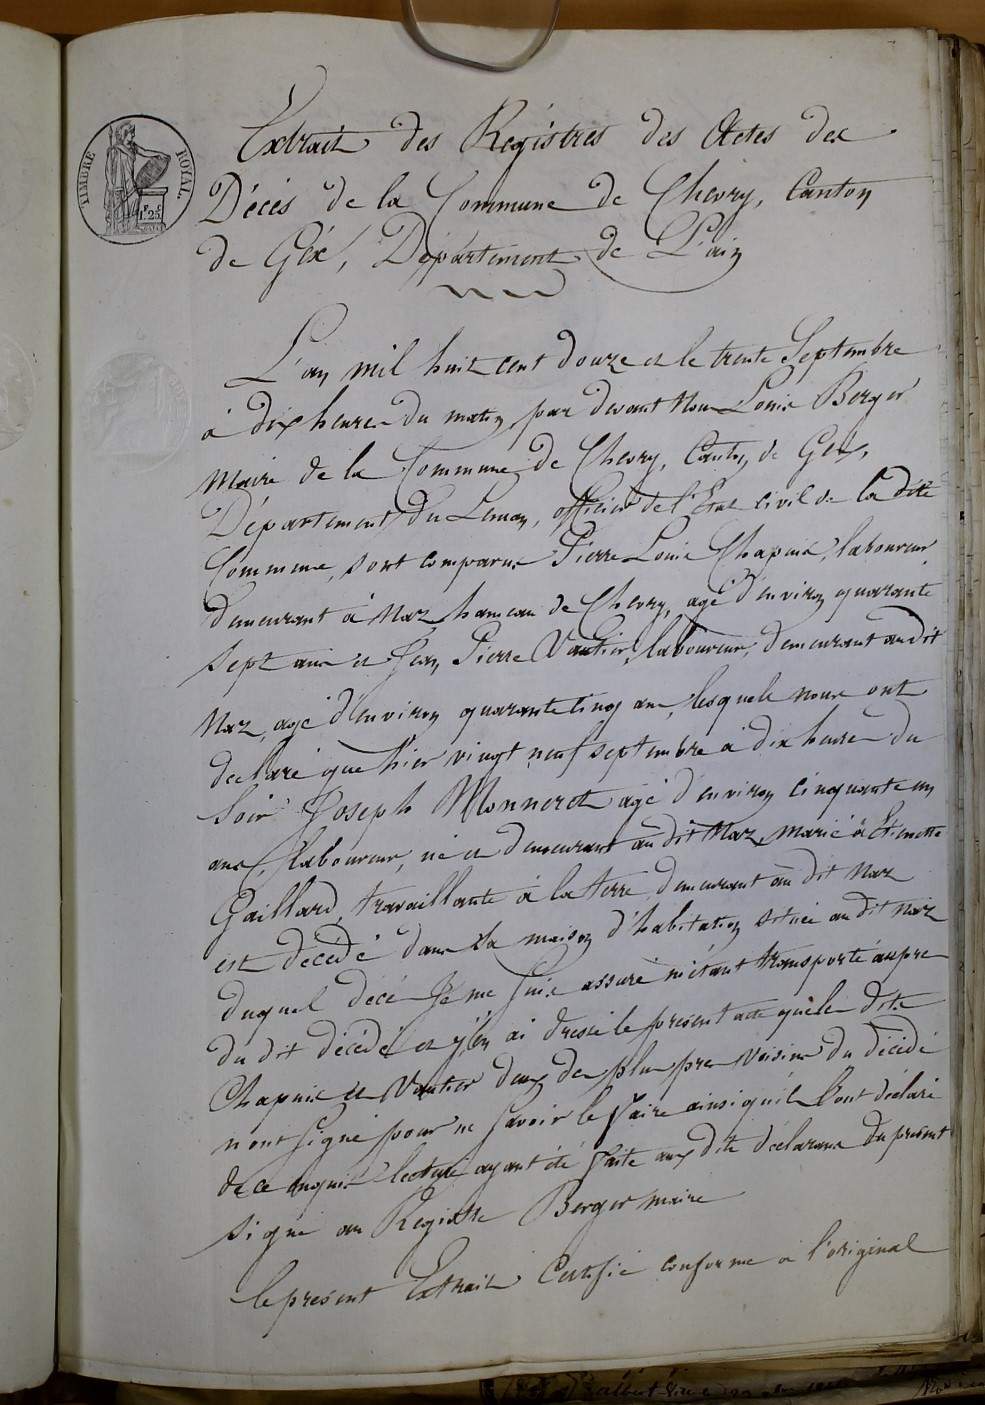 TIMBRE ROYAL.
1F 25
Extrait des Registres des Actes de
Décès de la Commune de Chevry, Canton
de Géx, Département de L'ain
L'an mil huit cent douze et le trente Septembre
à dix heures du matin par devant Nous Louis Berger
Maire de la Commune de Chevry, Canton de Gex,
Département du Leman, officier de l'Etat Civil de la dite
Commune, sont comparus Pierre Louis Chapuis, laboureur
demeurant à Naz hameau de Chevry, agé d'environ quarante
sept ans et Jean Pierre Vautier, laboureur, demeurant au dit
Naz, agé d'environ quarante cinq ans, lesquels nous ont
déclaré que hier vingt neuf septembre à dix heures du
soir Joseph Monneret agé d'environ cinquante un
ans, laboureur, né et demeurant au dit Naz, marié à Etienette
Gaillard, travaillante à la terre demeurant au dit Naz
est décédé dans sa maison d'habitation située au dit Naz
duquel décès Je me suis assuré m'étant transporté aupres
du dit décédé et j'en ai dressé le présent acte que les dits
Chapuis et Vautier deux des plus pres voisins du décédé
n'ont signé pour ne savoir le faire ainsi qu'ils l'ont déclaré
de ce enquis lecture ayant été faite aux dits déclarans du présent
signé au Registre Berger maire
le présent Extrait Certifié conforme à l'original